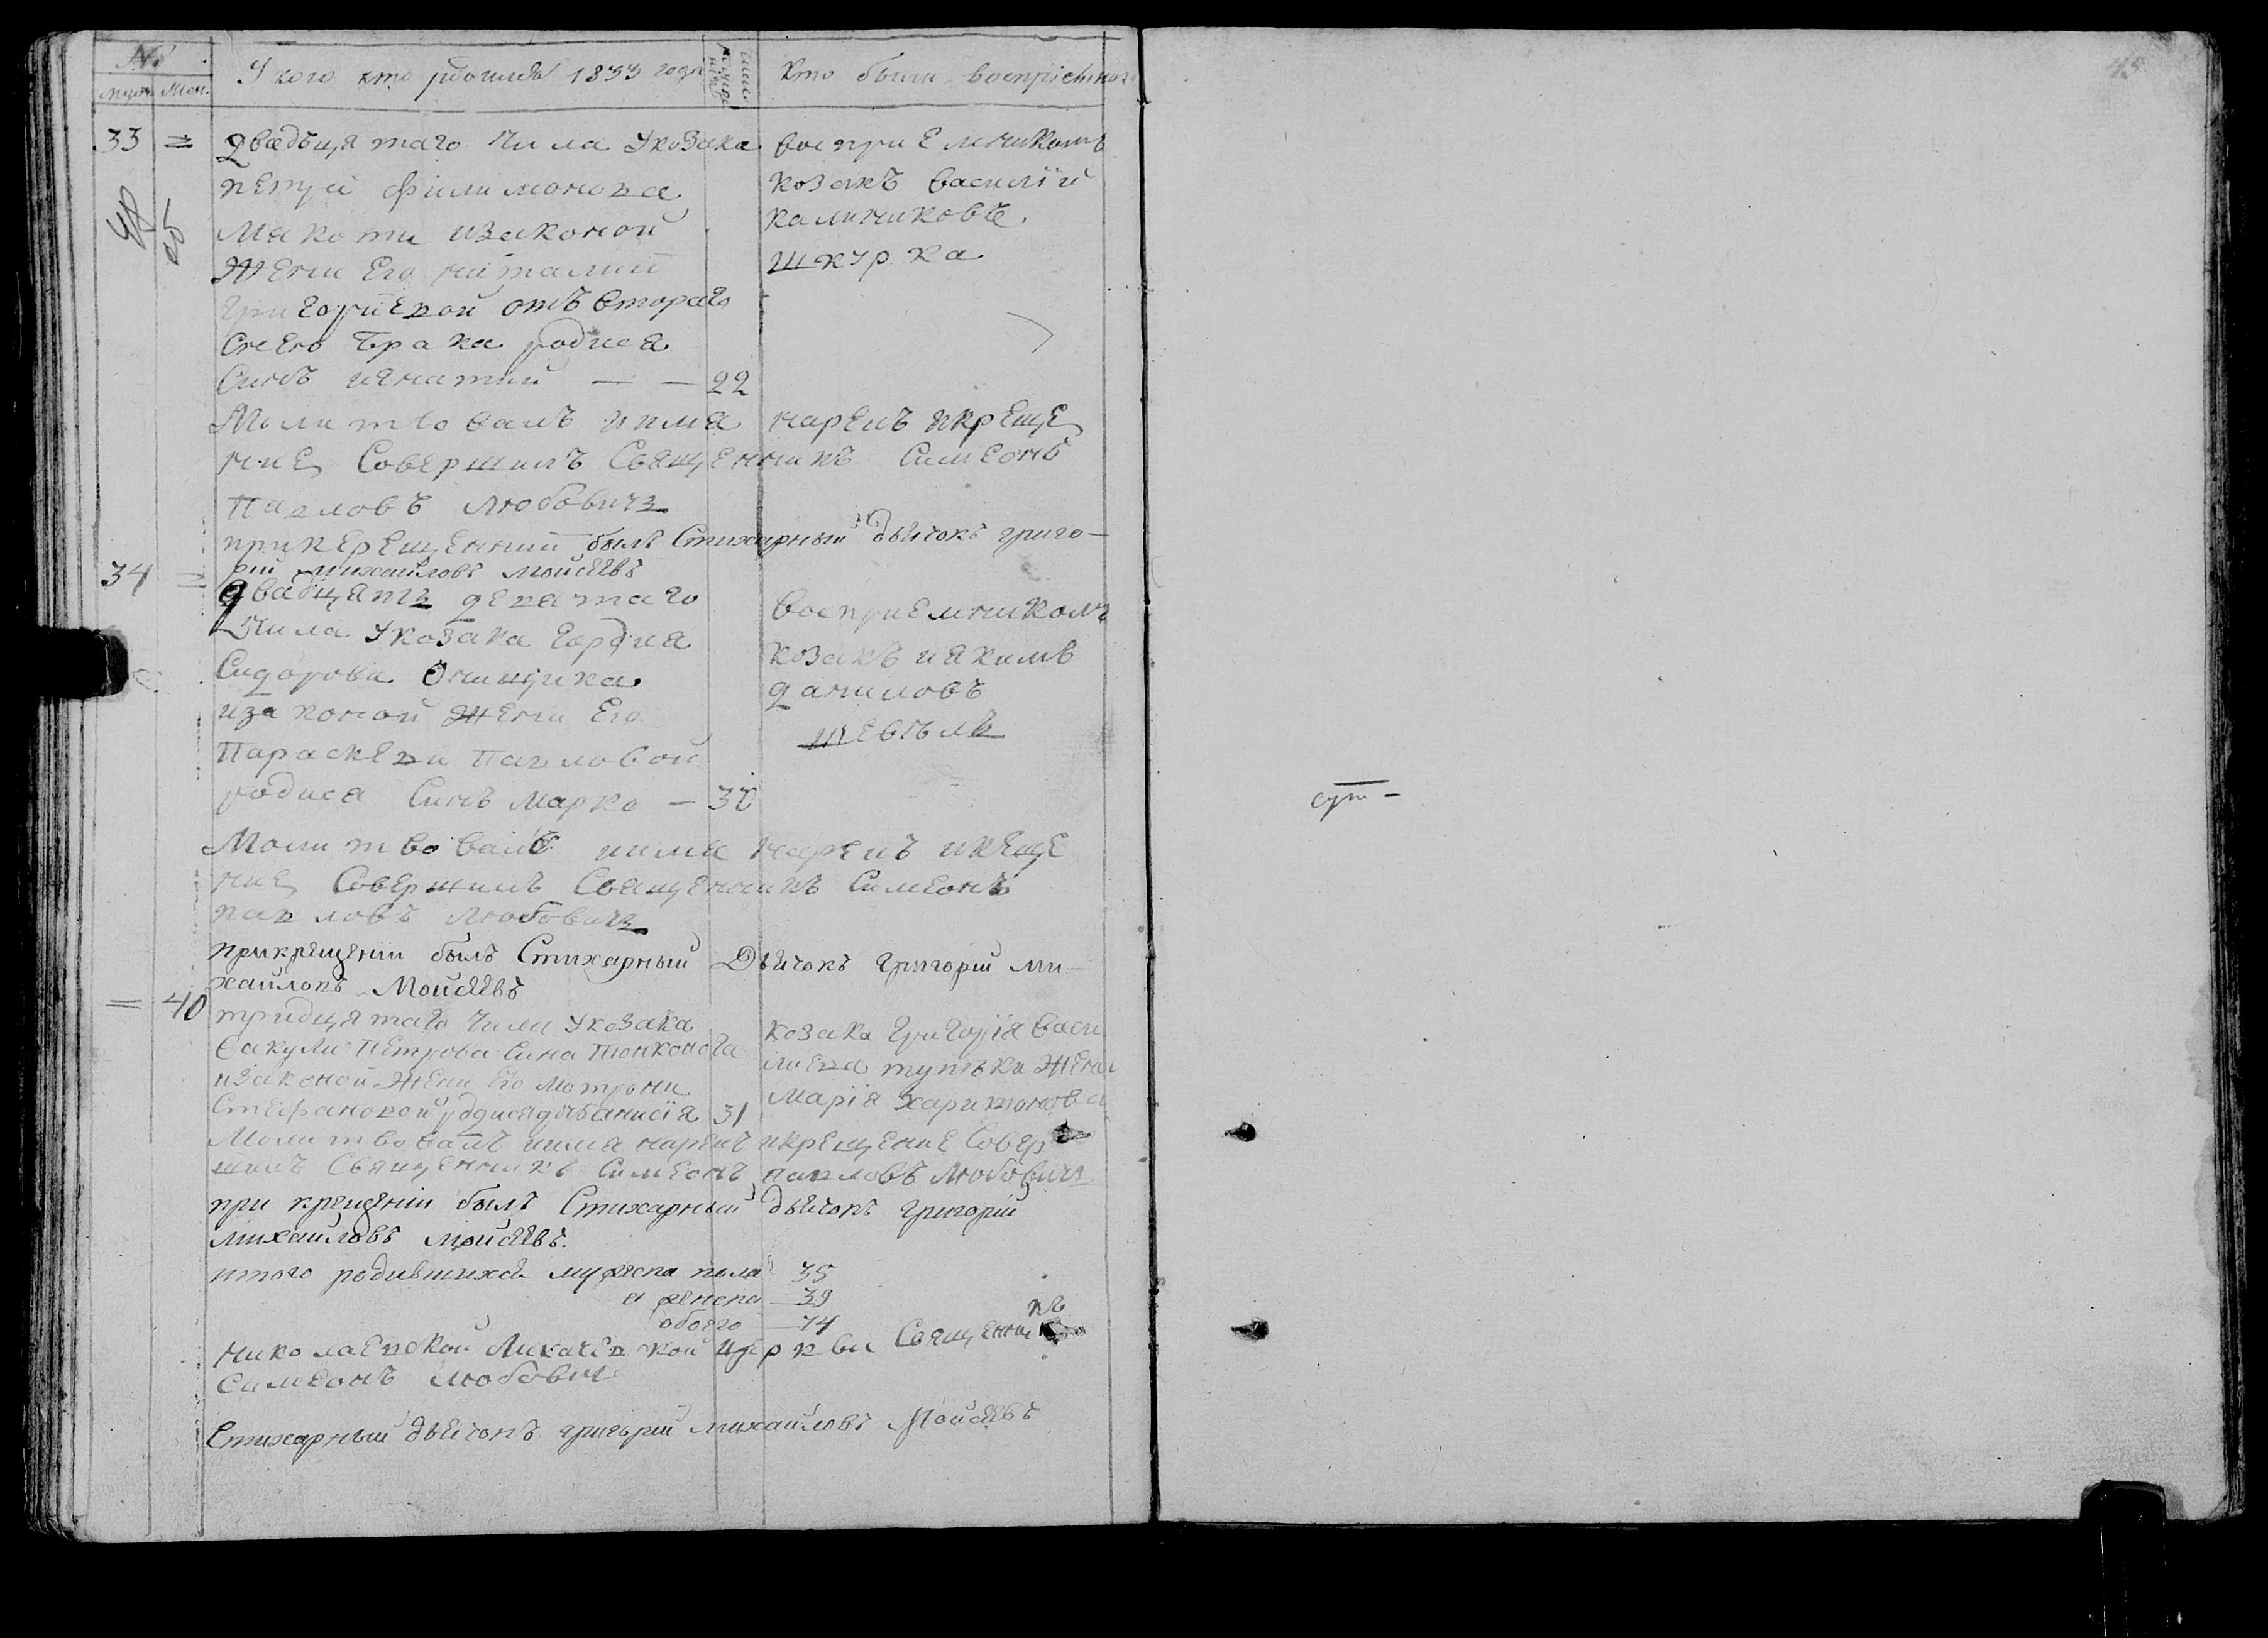 №
мужеска Жен.
У кого кто родился 1833 года
Кто были воспрiемники
33 =
Двадъцятаго Числа Укозака
петра филимонова
Макоти изаконой
Жени Его наталии
григориевой отъ втораго
Своего Брака родися
Синъ игнатий — — 22
воспри Емникомъ
козакъ василiй
калениковъ
шкурка
Молитвовалъ иимя нарекъ икреще
ние Совершилъ Священникъ Симеонъ
Павловъ Любовичъ
прикерещенний былъ Стихарный дьячокъ григо–
рiй михайловъ мойсеевъ
34 =
двадцять девятаго
Числа Укозака гордия
Сидорова Онищика
изаконой Жени Его
Параскеви Павловой
родися Синъ Марко — 30
Восприемникомъ
козакъ иякимъ
даниловъ
Молитвовалъ иимя нарекъ икеще
ние Совершилъ Священникъ Симеонъ
павловъ Любовичъ
прикрещении былъ Стихарный Дьячокъ Григорiй Ми–
хайловъ Мойсеевъ
= 40
тридцятаго Числа Укозака
вакули Петрова Сина Тонконога
изаконой Жени Его Мотрони
Стефановой родися дъванисiя 31
козака Григорiя Васи
лиева тупъки Жена
Марiя харитонова
Молитвовалъ иимя нарекъ икрещение Совер
шилъ Священникъ Симеонъ павловъ Любовичъ
при крещенiи былъ Стихарный дьячокъ Григорiй
михайловъ мойсеевъ.
итого родившихся мужеска пола 35
а женска 39
обоего 74
николаевской Лихачевской церкви Священникъ
Симеонъ Любовичъ
Стихарный дьячокъ григорiй михайловъ Мойсеевъ
45